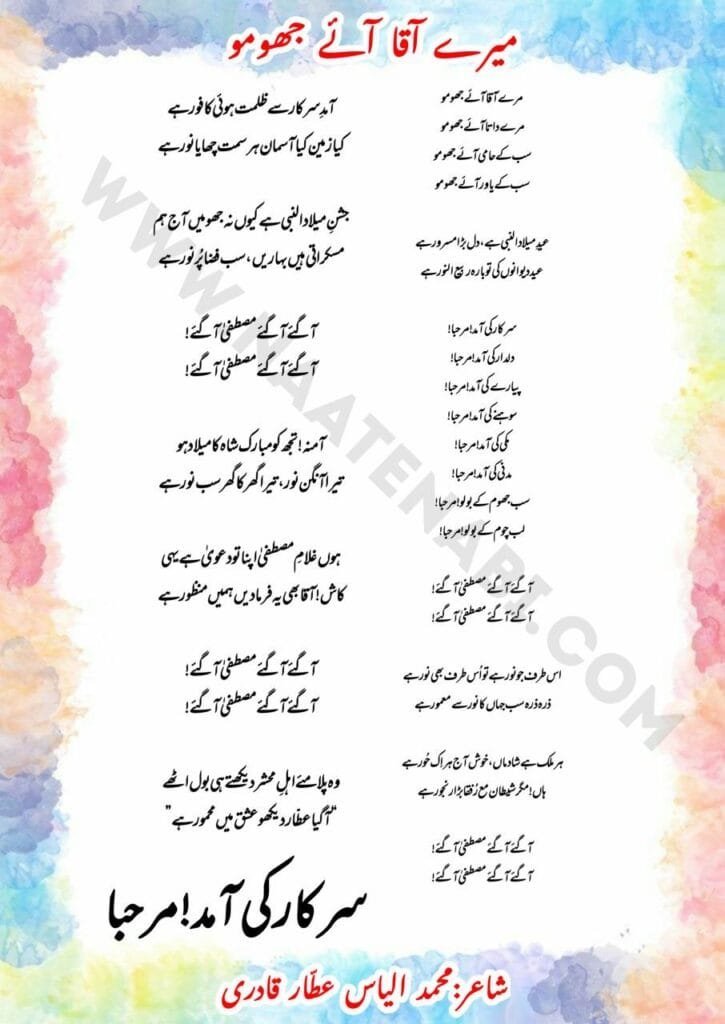 میرے آقا آئے جھومو
مرے آقا آئے جھومو
مرے داتا آئے جھومو
سب کے حامی آئے جھومو
سب کے یاور آئے جھومو
عیدِ میلاد النبی ہے، دل بڑا مسرور ہے
عید دیوانوں کی تو بارہ ربیع النور ہے
سرکار کی آمد! مرحبا!
دلدار کی آمد! مرحبا!
پیارے کی آمد! مرحبا!
سوہنے کی آمد! مرحبا!
مکی کی آمد! مرحبا!
مدنی کی آمد! مرحبا!
سب جھوم کے بولو! مرحبا!
لب چوم کے بولو! مرحبا!
آگئے آگئے مصطفیٰ آگئے!
آگئے آگئے مصطفیٰ آگئے!
اس طرف جو نور ہے تو اُس طرف بھی نور ہے
ذرہ ذرہ سب جہاں کا نور سے معمور ہے
ہر ملک ہے شادماں، خوش آج ہر اک حُور ہے
ہاں! مگر شیطان مع رُفقا بڑا رنجور ہے
آگئے آگئے مصطفیٰ آگئے!
آگئے آگئے مصطفیٰ آگئے!
آمدِ سرکار سے ظلمت ہوئی کافور ہے
کیا زمین کیا آسمان ہر سمت چھایا نور ہے
جشنِ میلاد النبی ہے کیوں نہ جھومیں آج ہم
مسکراتی ہیں بہاریں، سب فضا پُر نور ہے
آگئے آگئے مصطفیٰ آگئے!
آگئے آگئے مصطفیٰ آگئے!
آمنہ! تجھ کو مبارک شاہ کا میلاد ہو
تیرا آنگن نور، تیرا گھر کا گھر سب نور ہے
ہوں غلامِ مصطفیٰ اپنا تو دعویٰ ہے یہی
کاش! آقا بھی یہ فرمادیں ہمیں منظور ہے
آگئے آگئے مصطفیٰ آگئے!
آگئے آگئے مصطفیٰ آگئے!
وہ پلا مئے اہلِ محشر دیکھتے ہی بول اٹھے
"آگیا عطار دیکھو عشق میں مخمور ہے"
سرکار کی آمد! مرحبا
شاعر: محمد الیاس عطّار قادری
WWW.NAATENABI.COM